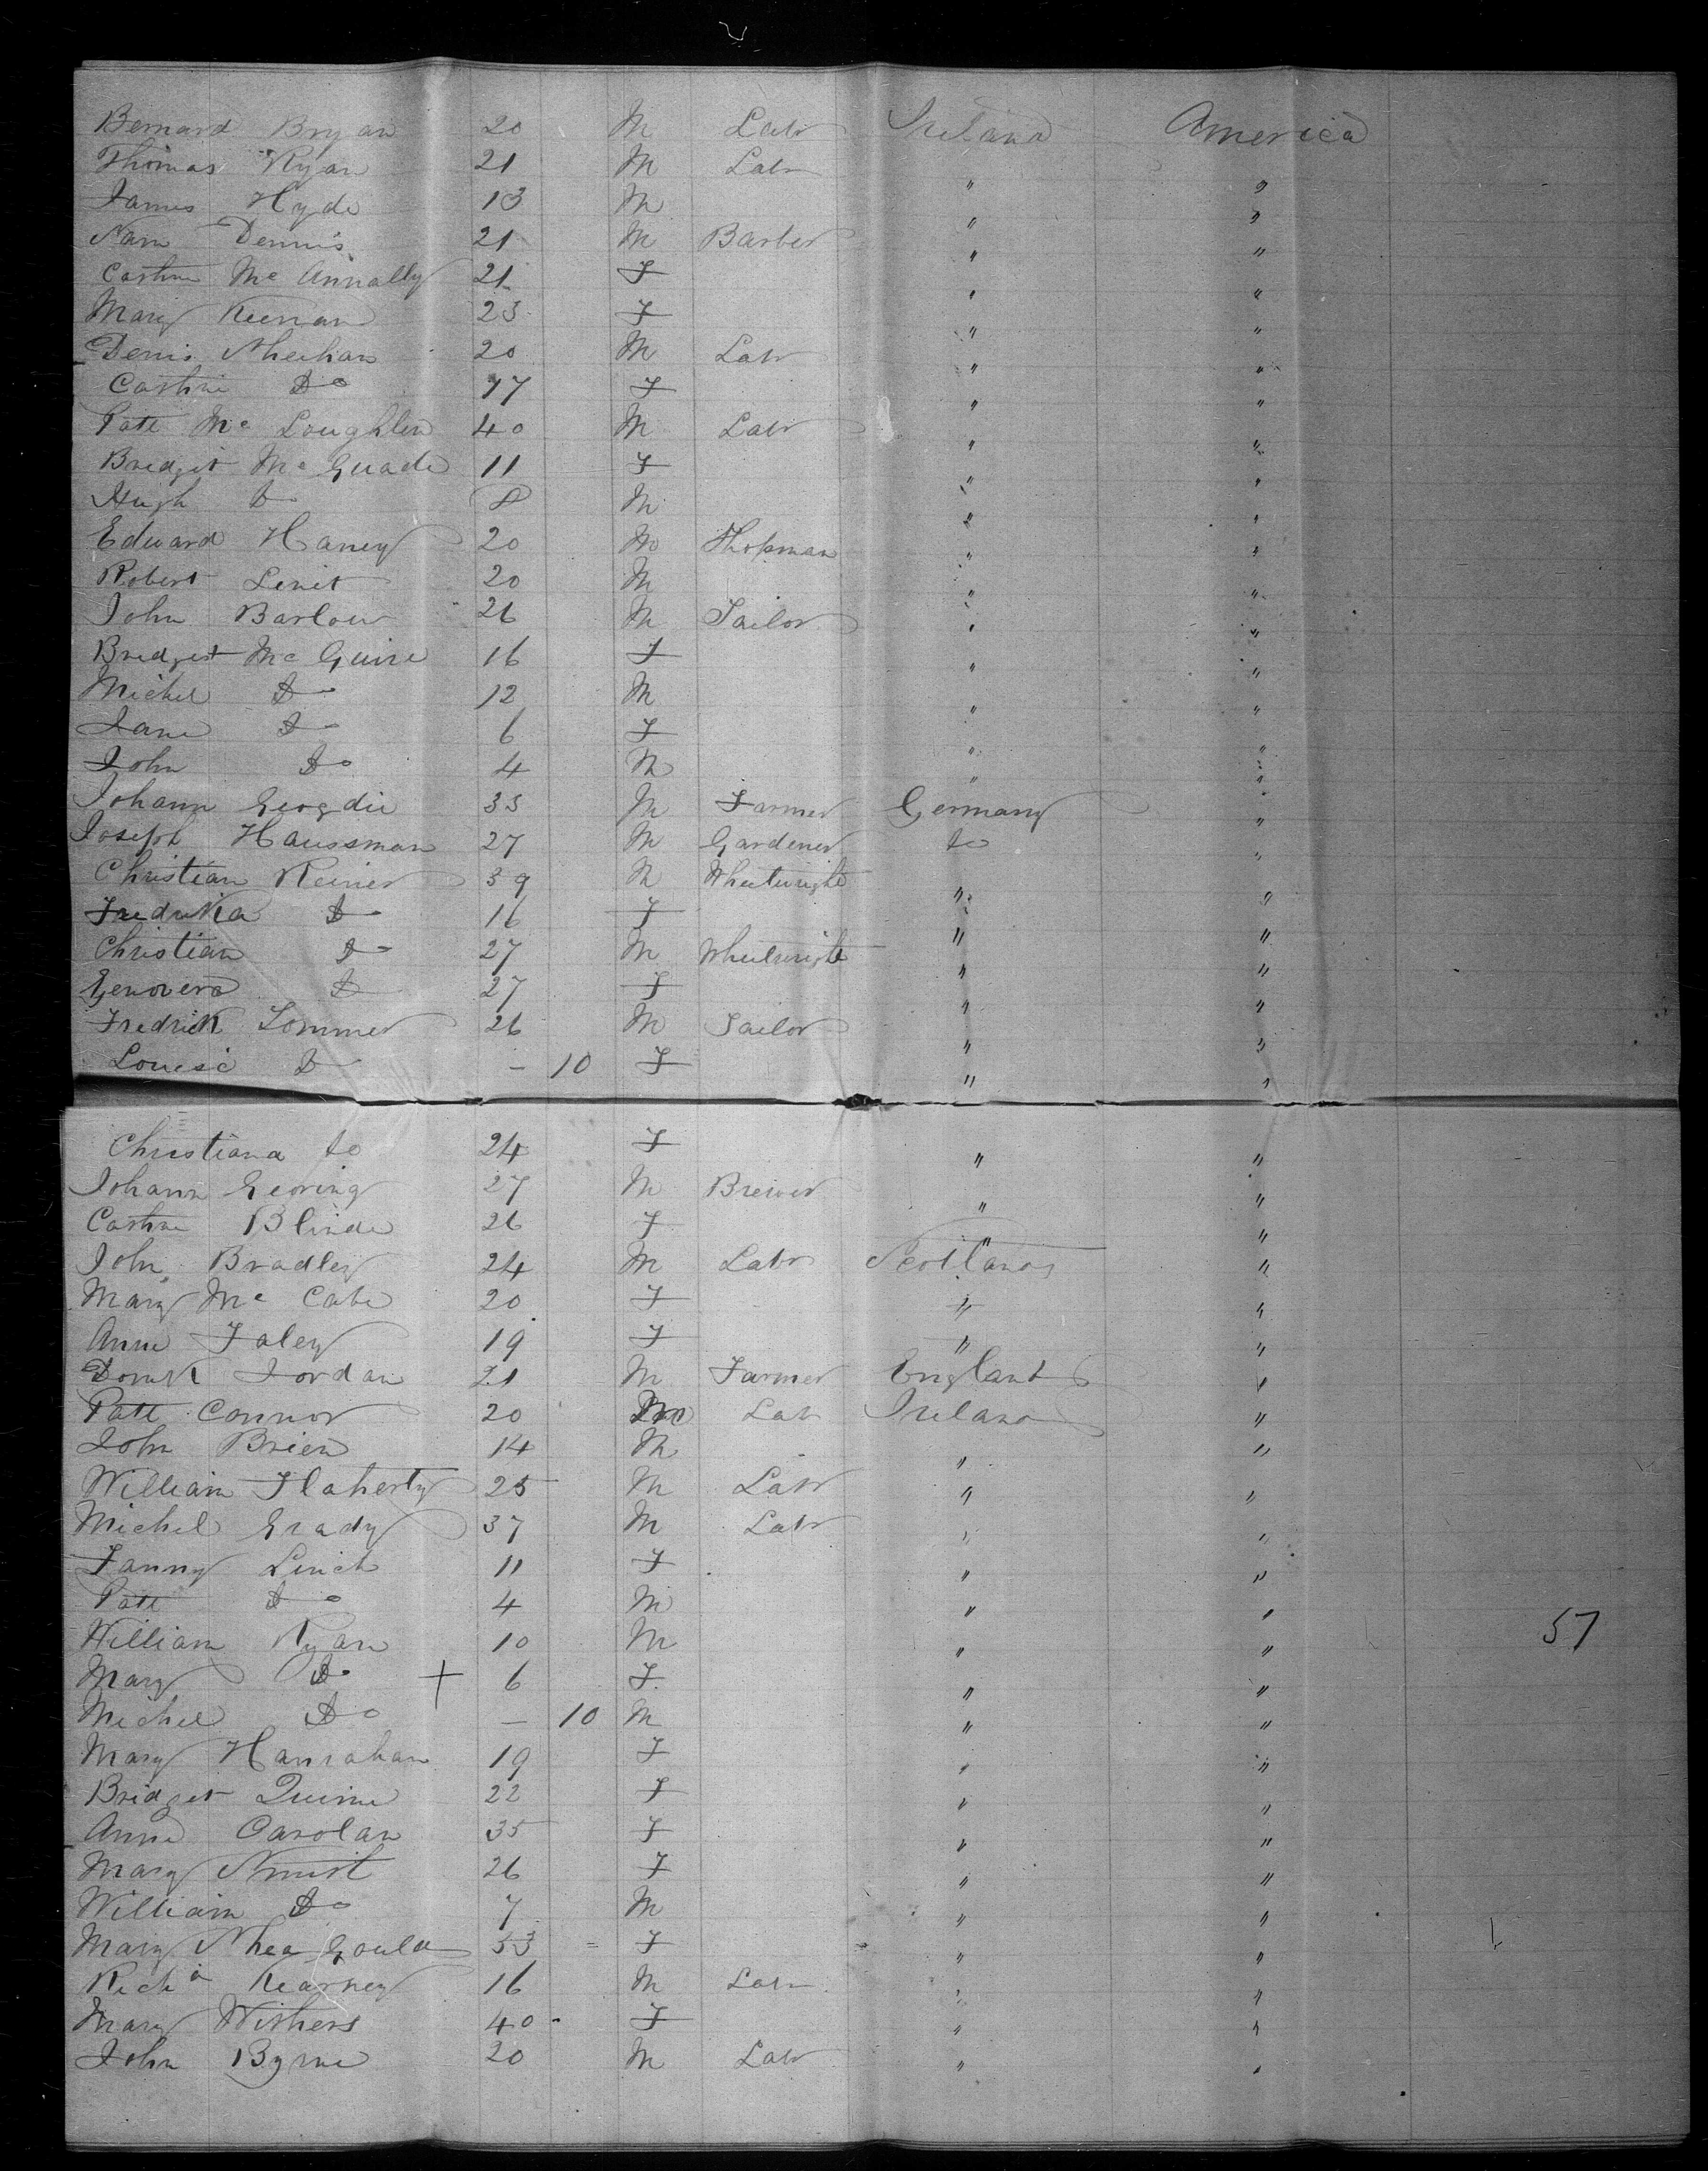 Bernard Bryan 20 M Labr Ireland America
Thomas Ryan 21 M Labr " "
James Hyde 13 M " "
Sam Dennis 21 M Barber " "
Cathne Mc Annally 21 F " "
Mary Keenan 23 F " "
Denis Sheehan 20 M Labr " "
Cathne Do 17 F " "
Patt Mc Loughlin 40 M Labr " "
Bridget Mc Guade 11 F " "
Hugh Do 8 M " "
Edward Haney 20 M Shopman " "
Robert 20 M " "
John Barlow 26 M Tailor " "
Bridget Mc Guire 16 F " "
Michel Do 12 M " "
Jane Do 6 F " "
John Do 4 M " "
Johann 35 M Farmer Germany "
Joseph Haussman 27 M Gardener do "
Christian Reiner 39 M Wheelwright " "
Fredrika Do 16 F " "
Christian Do 27 M Wheelwright " "
Genovera Do 27 F " "
Fredrick Sommer 26 M Tailor " "
Louise Do - 10 F " "
Christiana do 24 F " "
Johann Georing 27 M Brewer " "
Cathne Blinde 26 F " "
John Bradley 24 M Labr Scotland "
Mary Mc Cabe 20 F " "
Anne Foley 19 F " "
Jordan 21 M Farmer England "
Patt Connor 20 M Labr Ireland "
John Brien 14 M " "
William Flaherty 25 M Labr " "
Michel Grady 37 M Labr " "
Fanny Linch 11 F " "
Patt Do 4 M " "
William Ryan 10 M " " 57
Mary Do + 6 F " "
Michel Do - 10 M " "
Mary Hanrahan 19 F " "
Bridget Quinn 22 F " "
Anne Carolan 35 F " "
Mary 26 F " "
William Do 7 M " "
Mary Shea Gould 53 F " "
Richd Kearney 16 M Labr " "
Mary Withers 40 F " "
John Byrne 20 M Labr " "